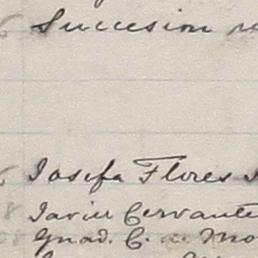 Succesion
Josefa Flores
Javier Cervante
Guad. C. de Mo